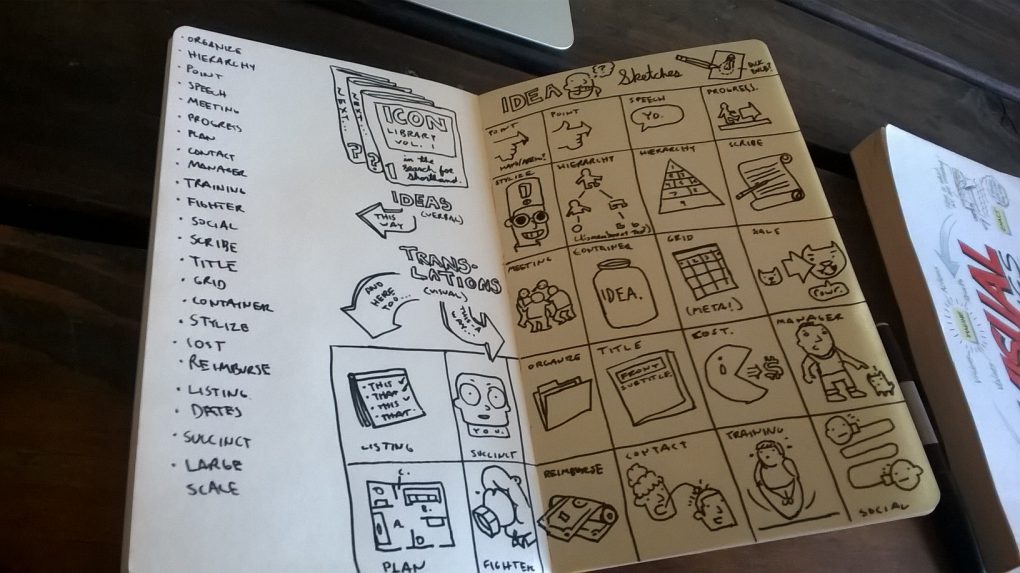 • ORGANIZE
• HIERARCHY
• POINT
• SPEECH
• MEETING
• PROGRESS
• PLAN
• CONTACT
• MANAGER
• TRAINING
• FIGHTER
• SOCIAL
• SCRIBE
• TITLE
• GRID
• CONTAINER
• STYLIZE
• COST
• REIMBURSE
• LISTING
• DATES
• SUCCINCT
• LARGE
SCALE
ICON
LIBRARY
VOL. 1
in the
search for
shorthand.
TEXT...
TEXT...
?
?
IDEAS
(VERBAL)
THIS
WAY
TRANS-
LATIONS
(VISUAL)
AND
HERE
TOO...
THIS
WAY...
• THIS
• THAT
• THIS
• THAT
LISTING
YOU.
SUCCINCT
C.
A.
B.
D
PLAN
FIGHTER
IDEA
?
Sketches
POINT
POINT
SPEECH
YO.
PROGRESS.
STYLIZE
HIERARCHY
HIERARCHY
SCRIBE
MEETING
CONTAINER
IDEA.
GRID
(META!)
ORGANIZE
TITLE
FRONT
SUBTITLE
COST.
$
MANAGER
REIMBURSE
CONTACT
TRAINING
SOCIAL